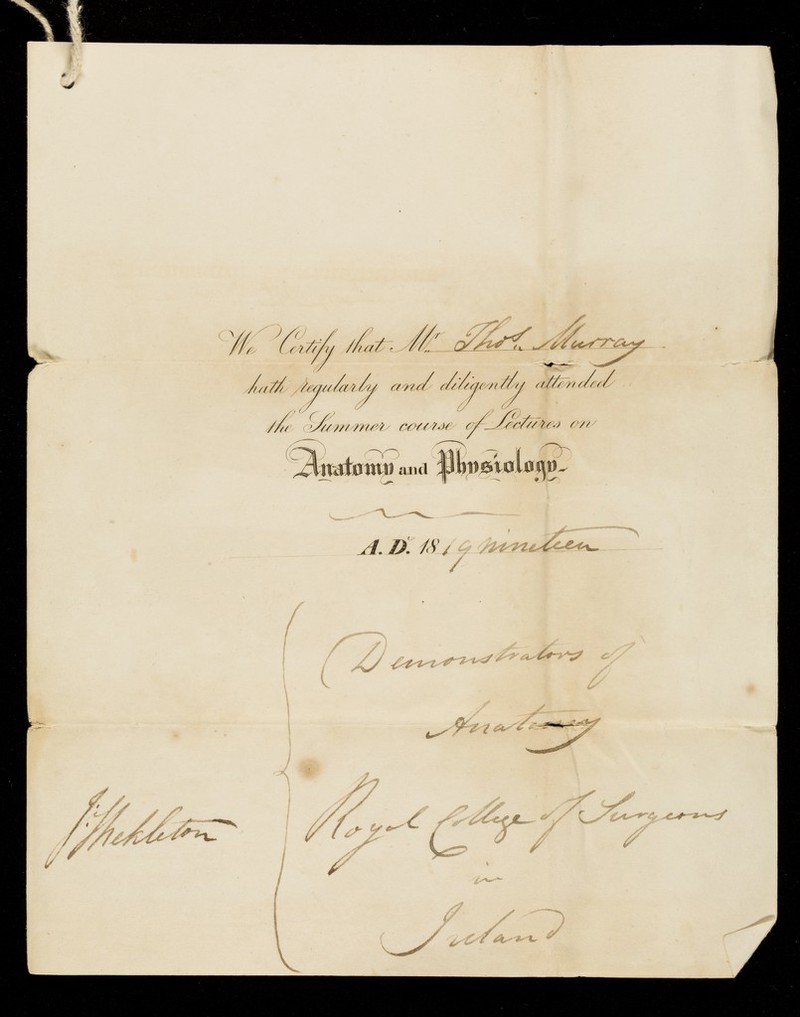 We Certify that Mr. Thos. Murray
hath regularly and diligently attended
the Summer course of Lectures on
Anatomy and Physiology
A.D. 1819 nineteen
Demonstrators of
Anatomy
J. Shekleton
Royal College of Surgeons
in
Ireland